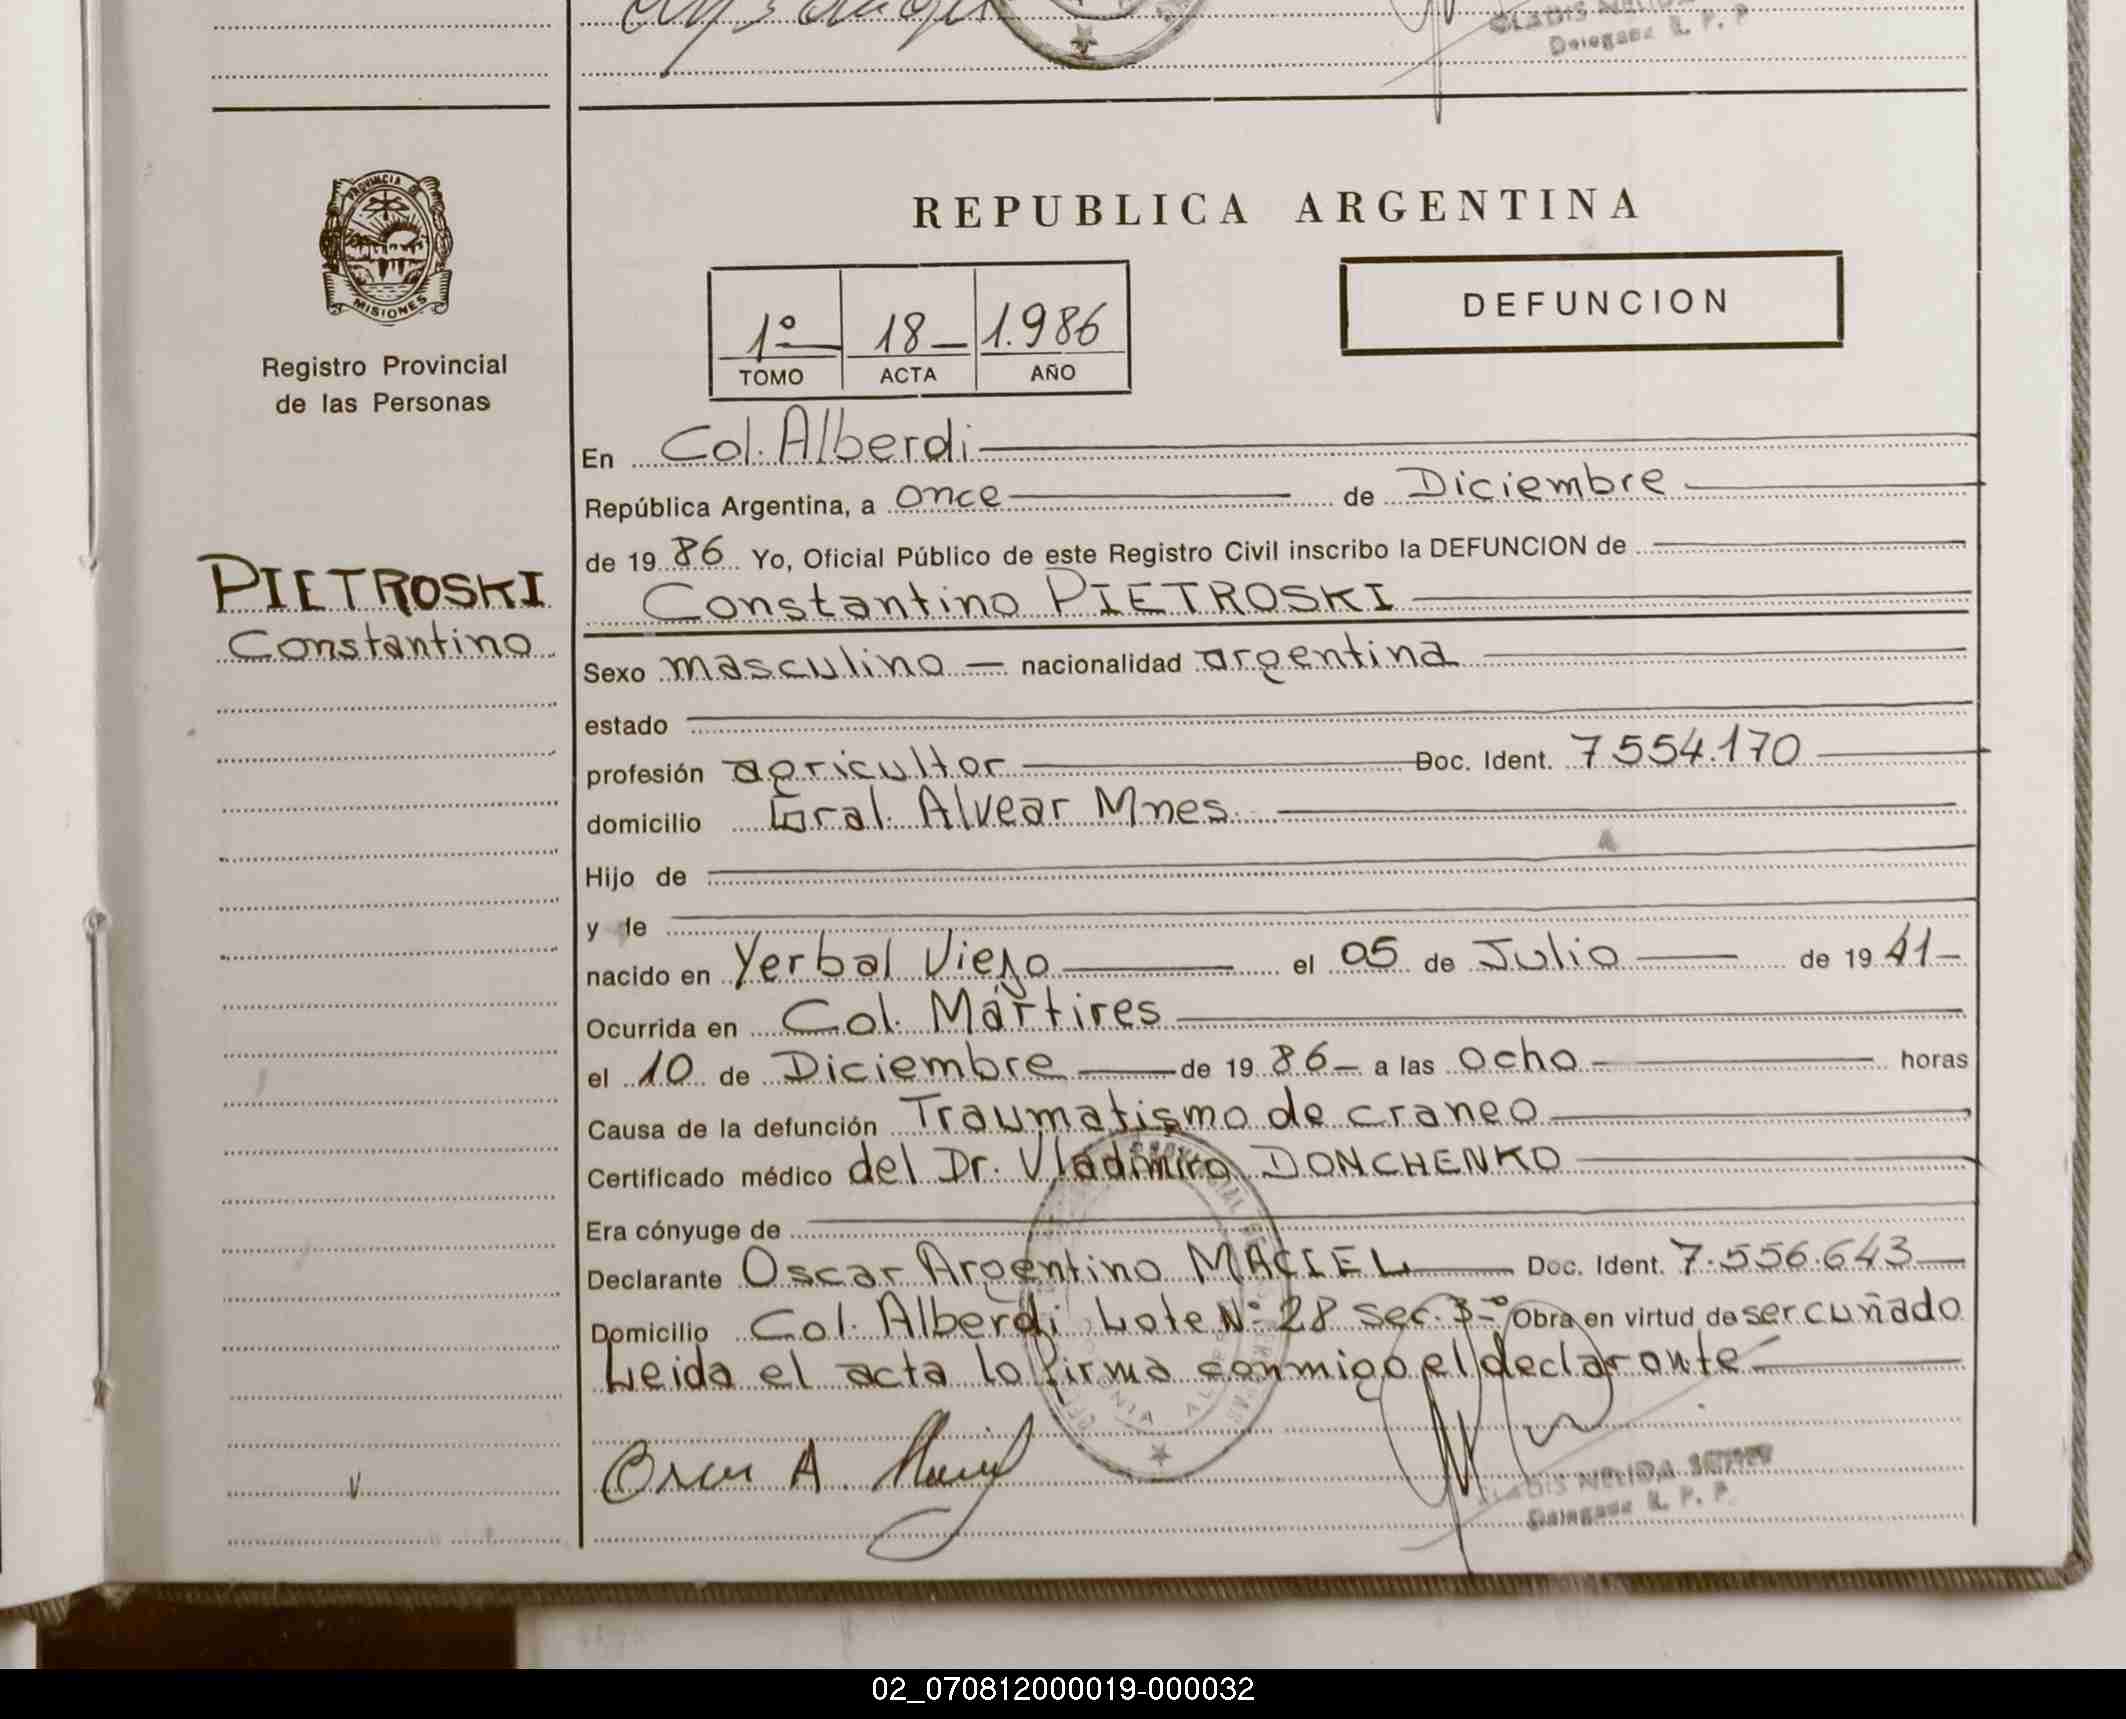 Delegada R. P. P
PROVINCIA DE
MISIONES
Registro Provincial
de las Personas
PIETROSKI
Constantino
REPUBLICA ARGENTINA
1º 18 1.986
TOMO ACTA AÑO
DEFUNCION
En Col. Alberdi
República Argentina, a once de Diciembre
de 19 86 Yo, Oficial Público de este Registro Civil inscribo la DEFUNCION de
Constantino PIETROSKI
Sexo masculino nacionalidad argentina
estado
profesión agricultor Doc. Ident. 7554.170
domicilio Gral. Alvear Mnes.
Hijo de
y de
nacido en Yerbal Viejo el 05 de Julio de 19 41
Ocurrida en Col. Mártires
el 10 de Diciembre de 19 86 a las ocho horas
Causa de la defunción Traumatismo de craneo
Certificado médico del Dr. Vladimiro DONCHENKO
Era cónyuge de
Declarante Oscar Argentino MACIEL Doc. Ident. 7.556.643
Domicilio Col. Alberdi Lote Nº 28 sec. 3º Obra en virtud de ser cuñado
Leida el acta lo firma conmigo el declarante
Oscar A. Maciel
GLADIS NELIDA
Delegada R. P. P.
02_070812000019-000032